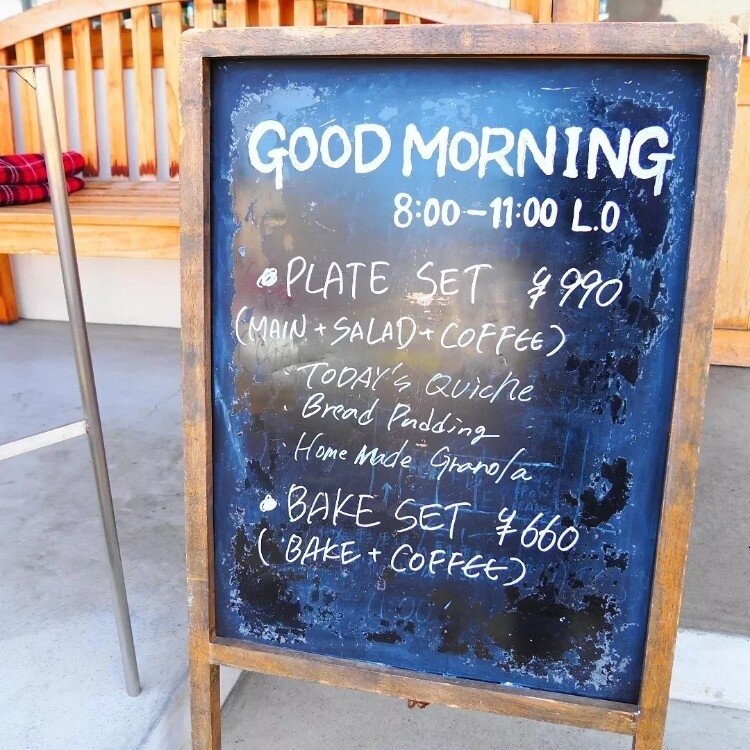 GOOD MORNING
8:00-11:00 L.O
• PLATE SET ¥990
(MAIN + SALAD + COFFEE)
· TODAY'S QUICHE
· Bread Pudding
· Home Made Granola
• BAKE SET ¥660
( BAKE + COFFEE )